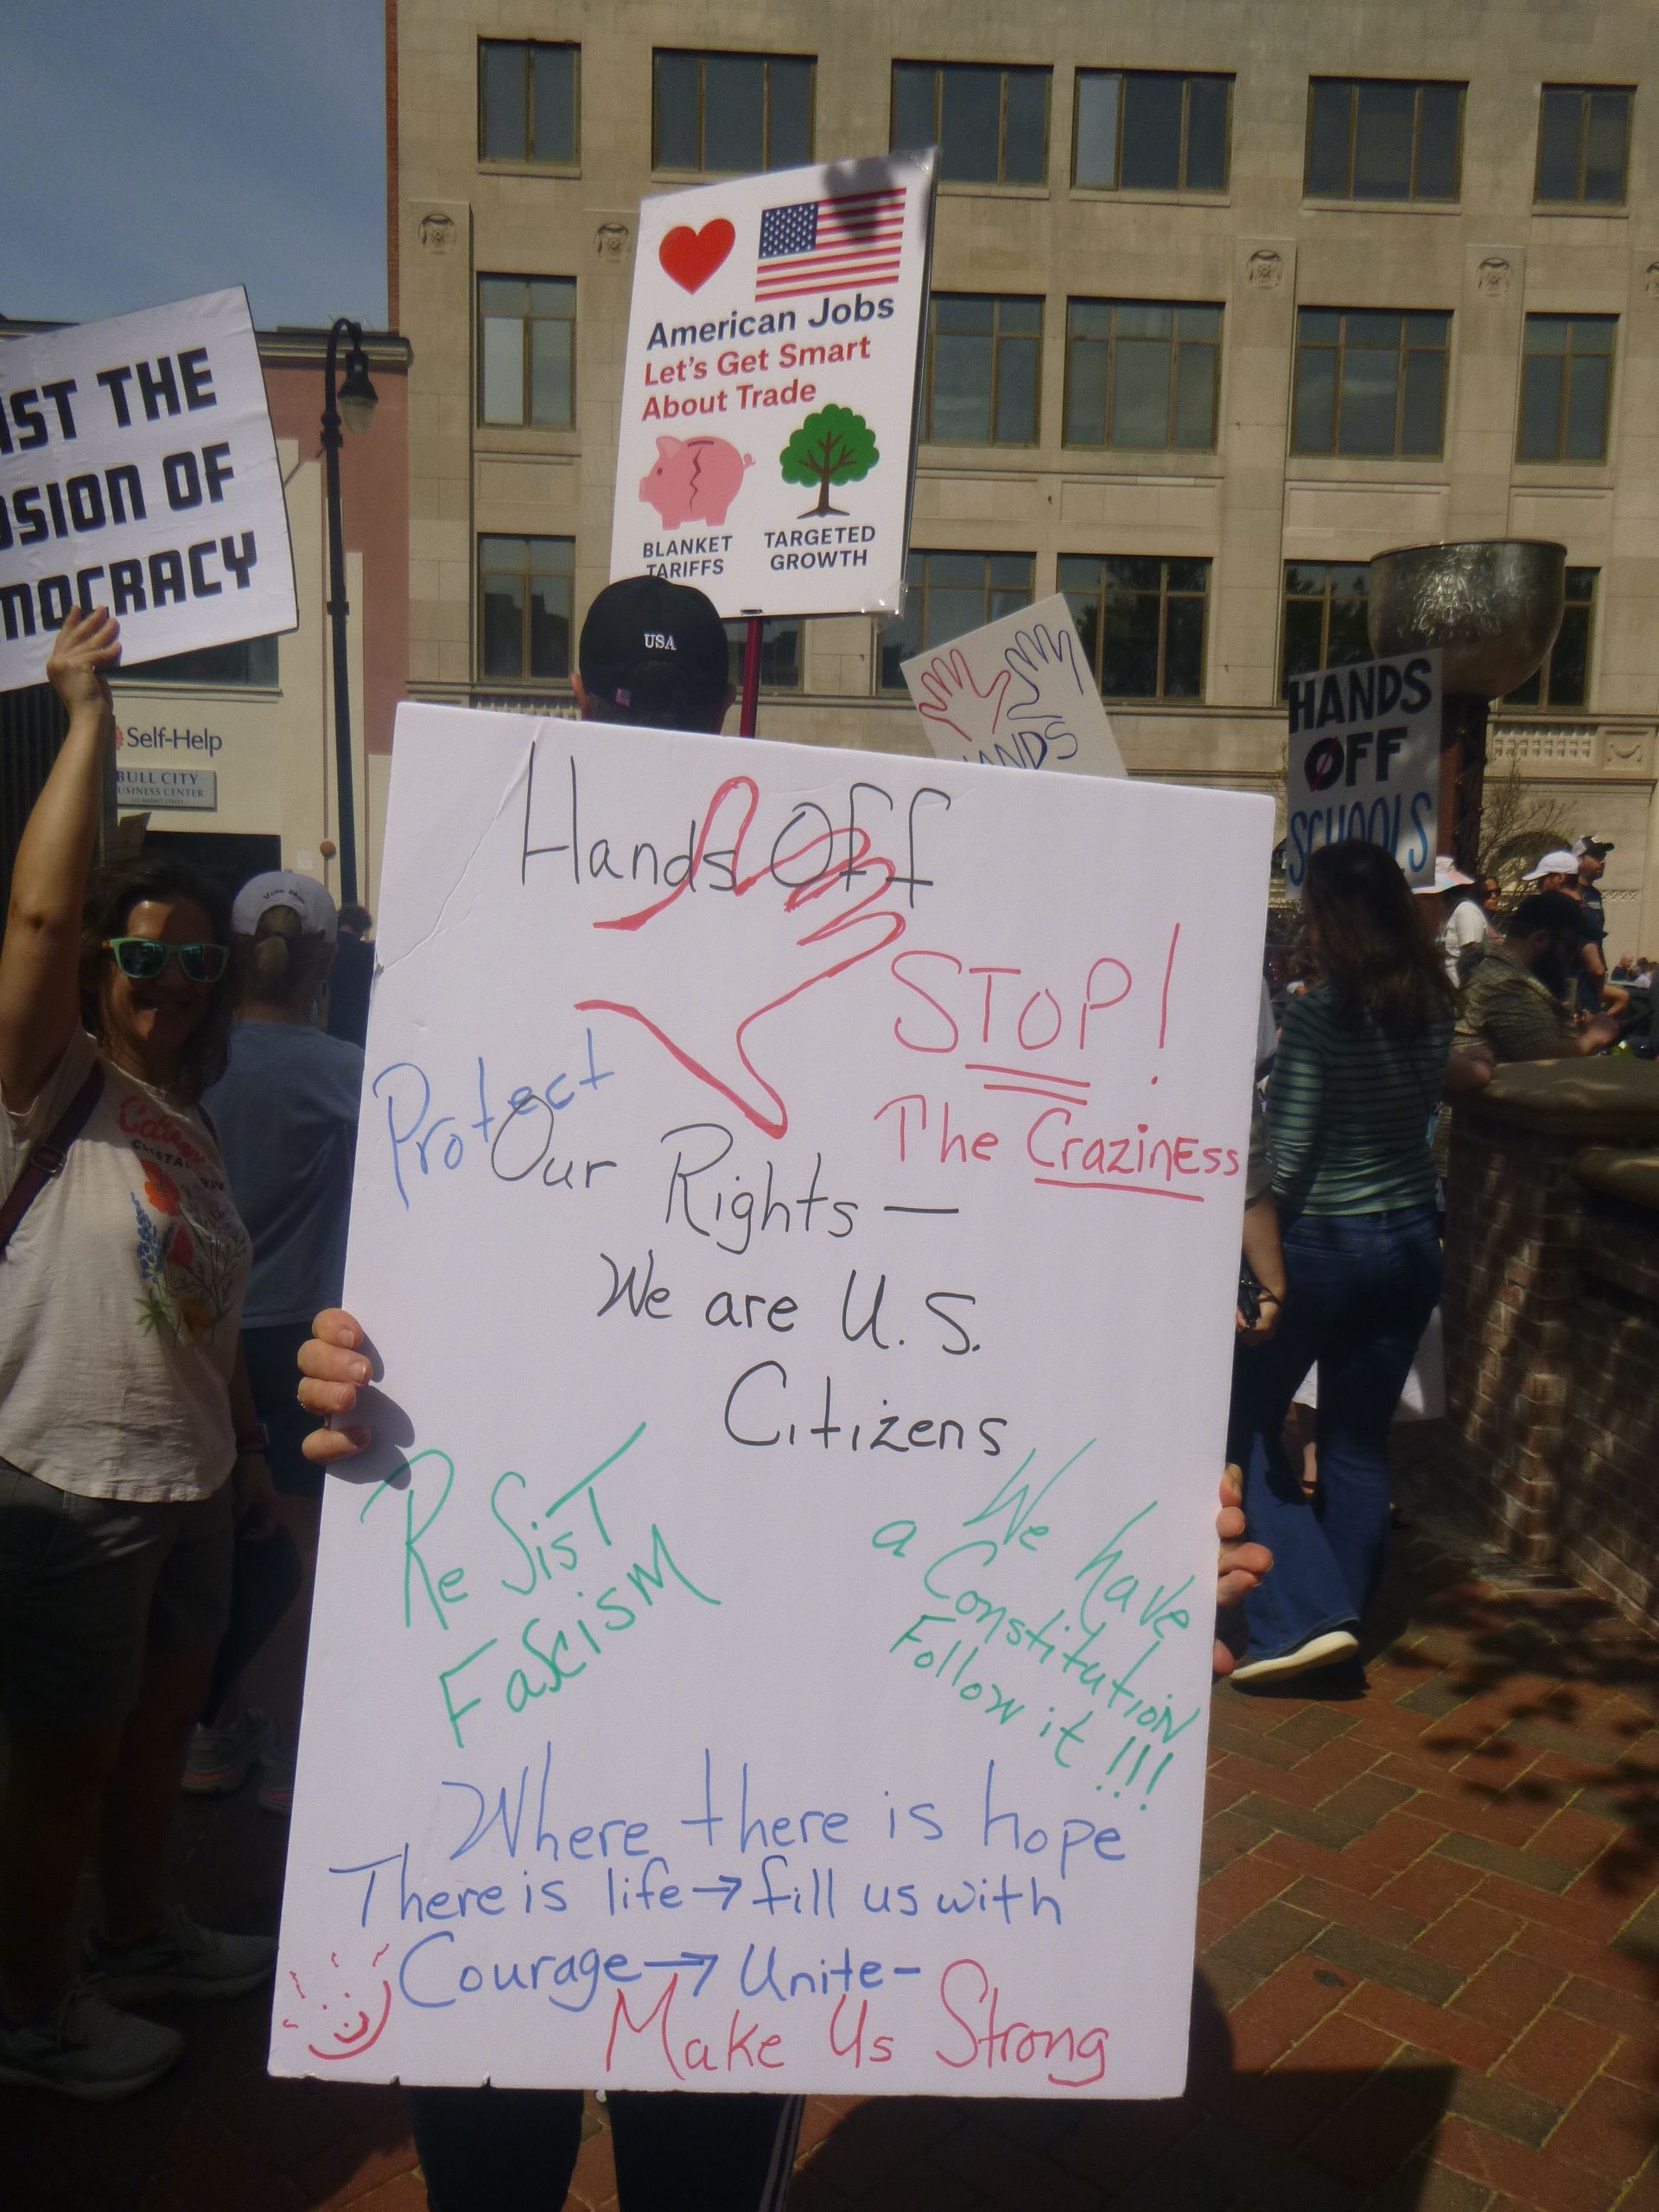 American Jobs
Let's Get Smart
About Trade
BLANKET
TARIFFS
TARGETED
GROWTH
THE
OF
USA
Self-Help
BULL CITY
HANDS
OFF
SCHOOLS
Hands Off
STOP!
The Craziness
Protect
Our Rights —
We are U.S.
Citizens
ReSisT
Fascism
We have
a Constitution
Follow it !!!
Where there is hope
There is life → fill us with
Courage → Unite-
Make Us Strong